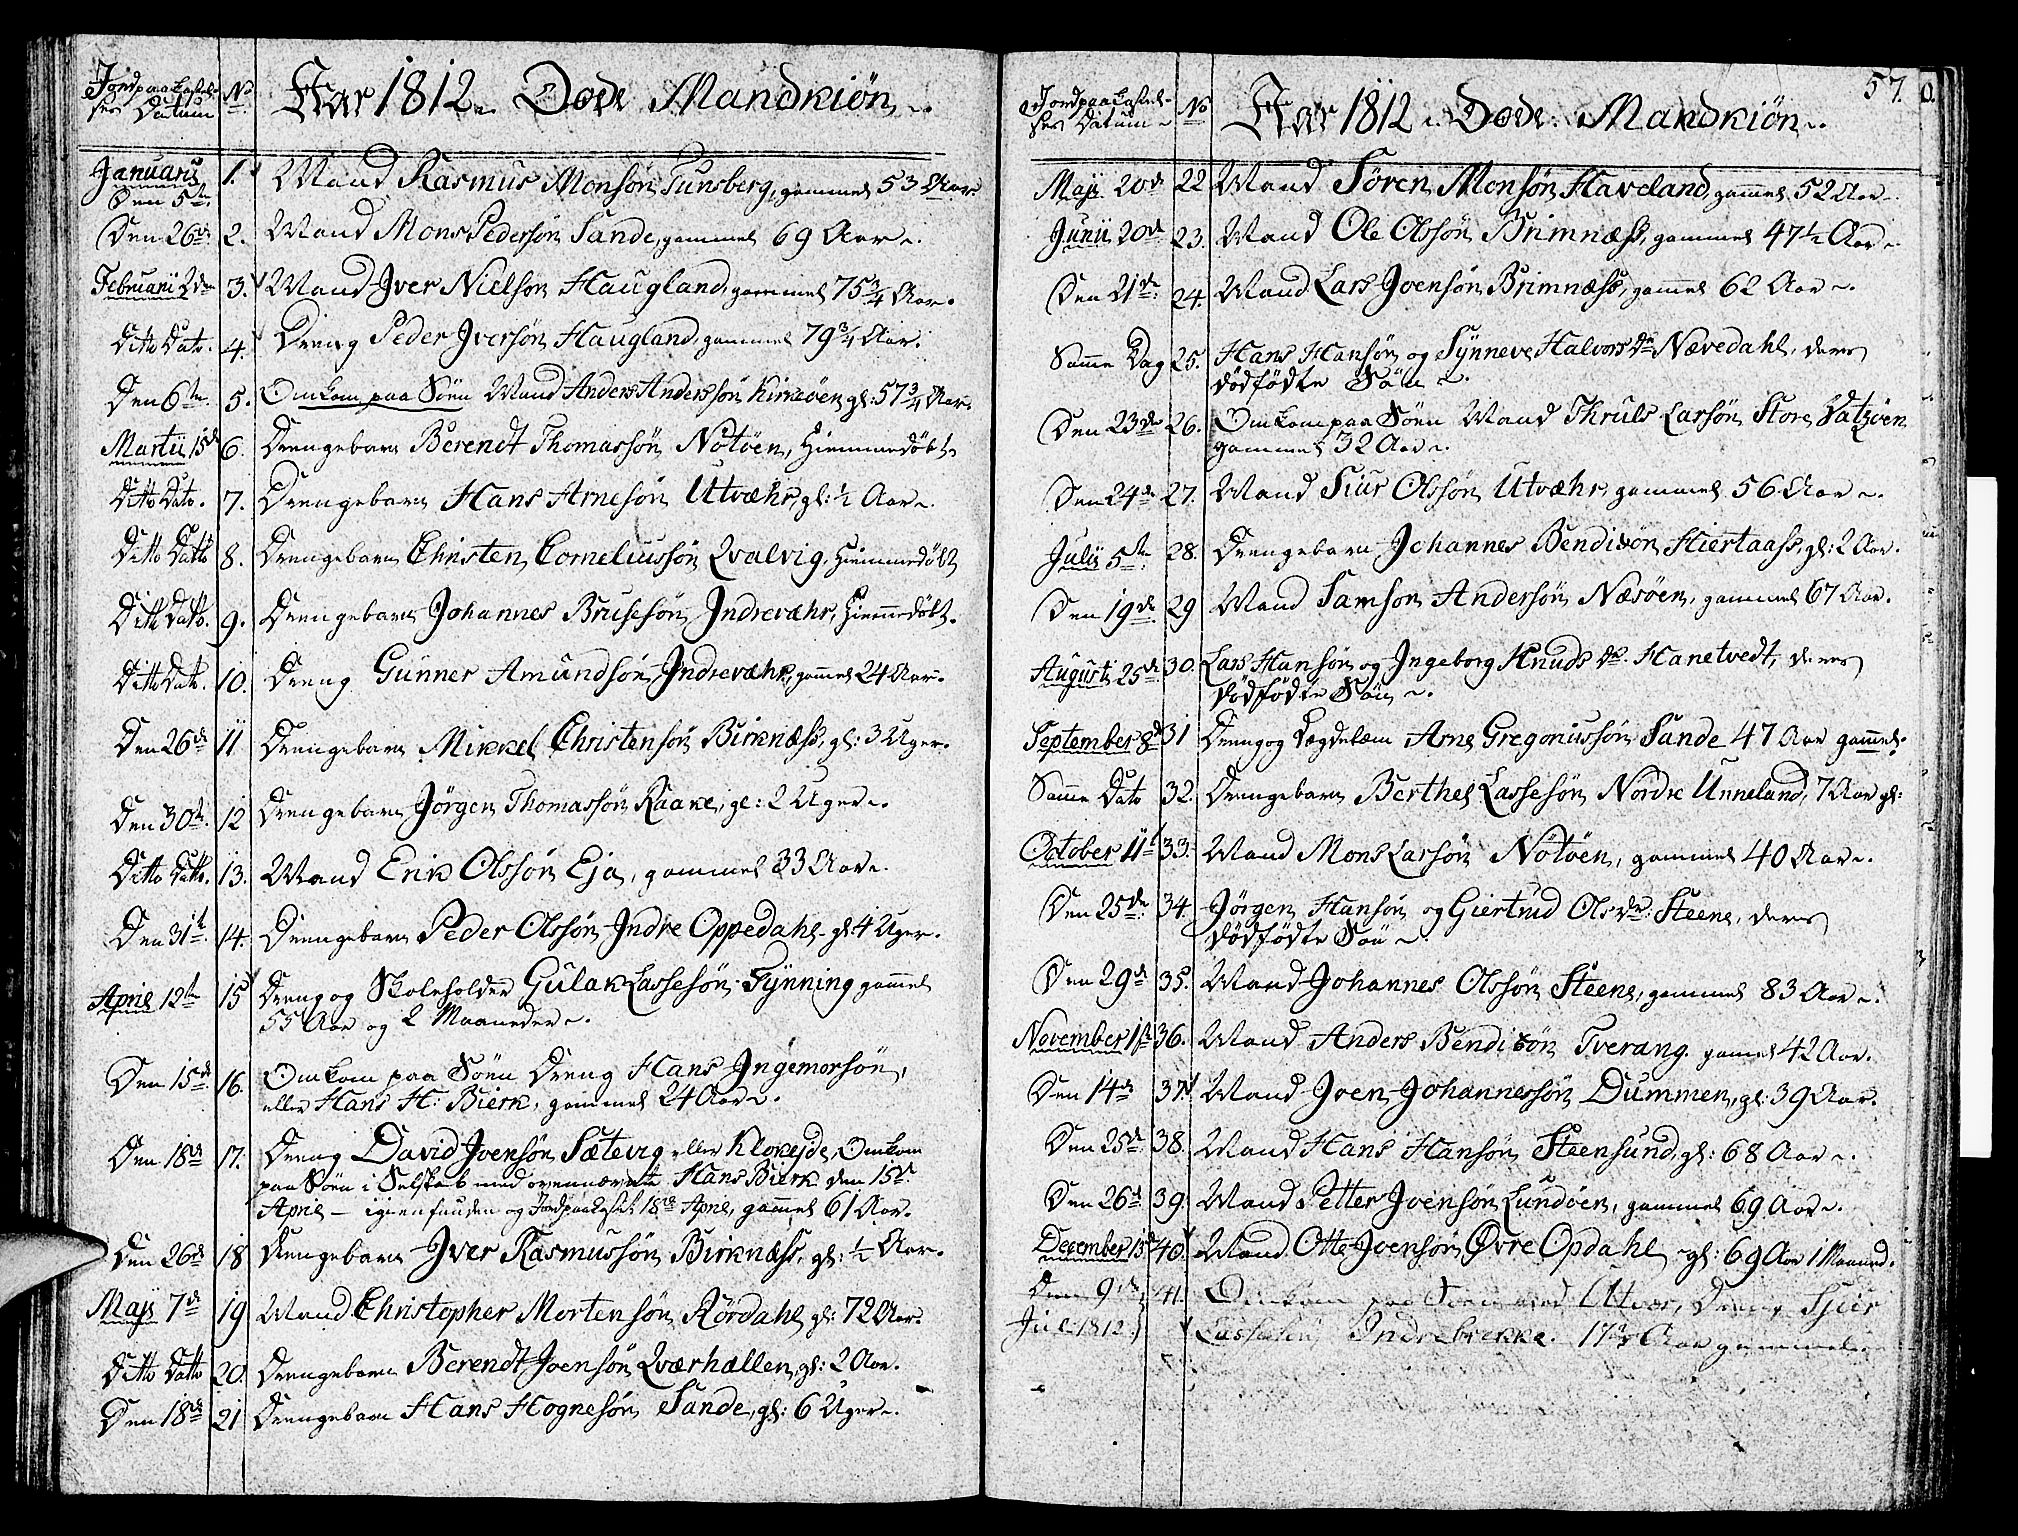 Jordpaakastel-
ses Datum
No
Aar 1812. Døde Mandkiøn.
Januarii
Den 5te. 1. Mand Rasmus Monsøn Tunsberg, gammel 53 Aar.
Den 26de 2. Mand Mons Pedersøn Sande, gammel 69 Aar.
Februarii 2den 3. Mand Iver Nielsøn Haugland, gammel 75 3/4 Aar.
Ditto Dato. 4. Dreng Peder Iversøn Haugland, gammel 79 3/4 Aar.
Den 6te. 5. Omkom paa Søen Mand Anders Anderssøn Kirkøen gl: 57 3/4 Aar.
Martii 15de 6. Drengebarn Berendt Thomassøn Notøen, Hiemmedøbt.
Ditto Dato. 7. Drengebarn Hans Arnesøn Utvæhr, gl: 1/2 Aar.
Ditto Datto 8. Drengebarn Christen Corneliussøn Qvalvig, Hiemmedøbt
Ditto Datto. 9. Drengebarn Johannes Brusesøn Indrevæhr, Hiemmedøbt.
Ditto Dato. 10. Dreng Gunner Amundsøn Indrevæhr, gammel 24 Aar.
Den 26de 11 Drengebarn Mikkel Christensøn Birknæss, gl: 3 Uger.
Den 30te. 12 Drengebarn Jørgen Thomassøn Raake, gl: 2 Uger.
Ditto Datto. 13. Mand Erik Olssøn Eja, gammel 33 Aar.
Den 31te. 14. Drengebarn Peder Olssøn Indre Oppedahl gl: 4 Uger.
April 12te 15 Dreng og Skoleholder Gulak Lassesøn Fynning gammel
55 Aar og 2 Maaneder.
Den 15de 16. Omkom paa Søen Dreng Hans Ingemorsøn,
eller Hans H: Bierk, gammel 24 Aar.
Den 18de 17. Dreng David Joensøn Sætevig eller Klokejde, Omkom
paa Søen i Selskab med ovennævnte Hans Bierk den 15de
April – igienfunden og Jordpaakastet 18de April, gammel 61 Aar.
Den 26de 18 Drengebarn Iver Rasmussøn Birknæss, gl: 1/2 Aar.
Maji 7de 19 Mand Christopher Mortensøn Rørdahl gl: 72 Aar.
Ditto Datto 20. Drengebarn Berendt Joensøn Qværhællen, gl: 2 Aar.
Den 18de 21 Drengebarn Hans Hognesøn Sande, gl: 6 Uger.
57.
Jordpaakastel-
ses Datum
No
Aar 1812. Døde Mandkiøn.
Maji 20de 22 Mand Søren Monsøn Haveland, gammel 52 Aar.
Junii 20de 23. Mand Ole Olssøn Brimnæss, gammel 47 1/2 Aar.
Den 21de. 24. Mand Lars Joensøn Brimnæss, gammel 62 Aar.
Samme Dag 25. Hans Hansøn og Synneve Halvors Dr. Nævedahl, deres
dødfødte Søn.
Den 23de 26. Omkom paa Søen Mand Thruls Larsøn Store Batzøen
gammel 32 Aar.
Den 24de 27. Mand Siur Olssøn Utvæhr, gammel 56 Aar.
Julii 5te 28. Drengebarn Johannes Bendixøn Hiertaass, gl: 2 Aar.
Den 19de 29 Mand Samson Andersøn Næsøen, gammel 67 Aar.
Augusti 25de 30. Lars Hansøn og Ingeborg Knuds Dr. Hanetvedt, deres
dødfødte Søn.
September 8de 31 Dreng og Lægdelem Arne Gregoriussøn Sande 47 Aar gammel.
Samme Dato 32. Drengebarn Berthel Lassesøn Nordre Unneland, 7 Aar gl:
October 11te 33. Mand Mons Larsøn Notøen, gammel 40 Aar.
Den 25de. 34. Jørgen Hansøn og Giertrud Ols Dr. Steene, deres
dødfødte Søn.
Den 29de 35. Mand Johannes Olssøn Steene, gammel 83 Aar.
November 1te 36. Mand Anders Bendixøn Tverang. gammel 42 Aar.
Den 14de 37. Mand Joen Johannessøn Dummen, gl: 39 Aar.
Den 25de 38. Mand Hans Hansøn Steensund, gl: 68 Aar.
Den 26de 39. Mand Petter Joensøn Lundøen, gammel 69 Aar.
December 15de 40. Mand Otte Joensøn Øvre Opdahl gl: 69 Aar 1 Maaned.
Den 9de 41. Omkom paa Søen ved Utvær, Dreng Sjur
Jul: 1812. Lassesøn Indrebrekke. 17 Aar gammel.